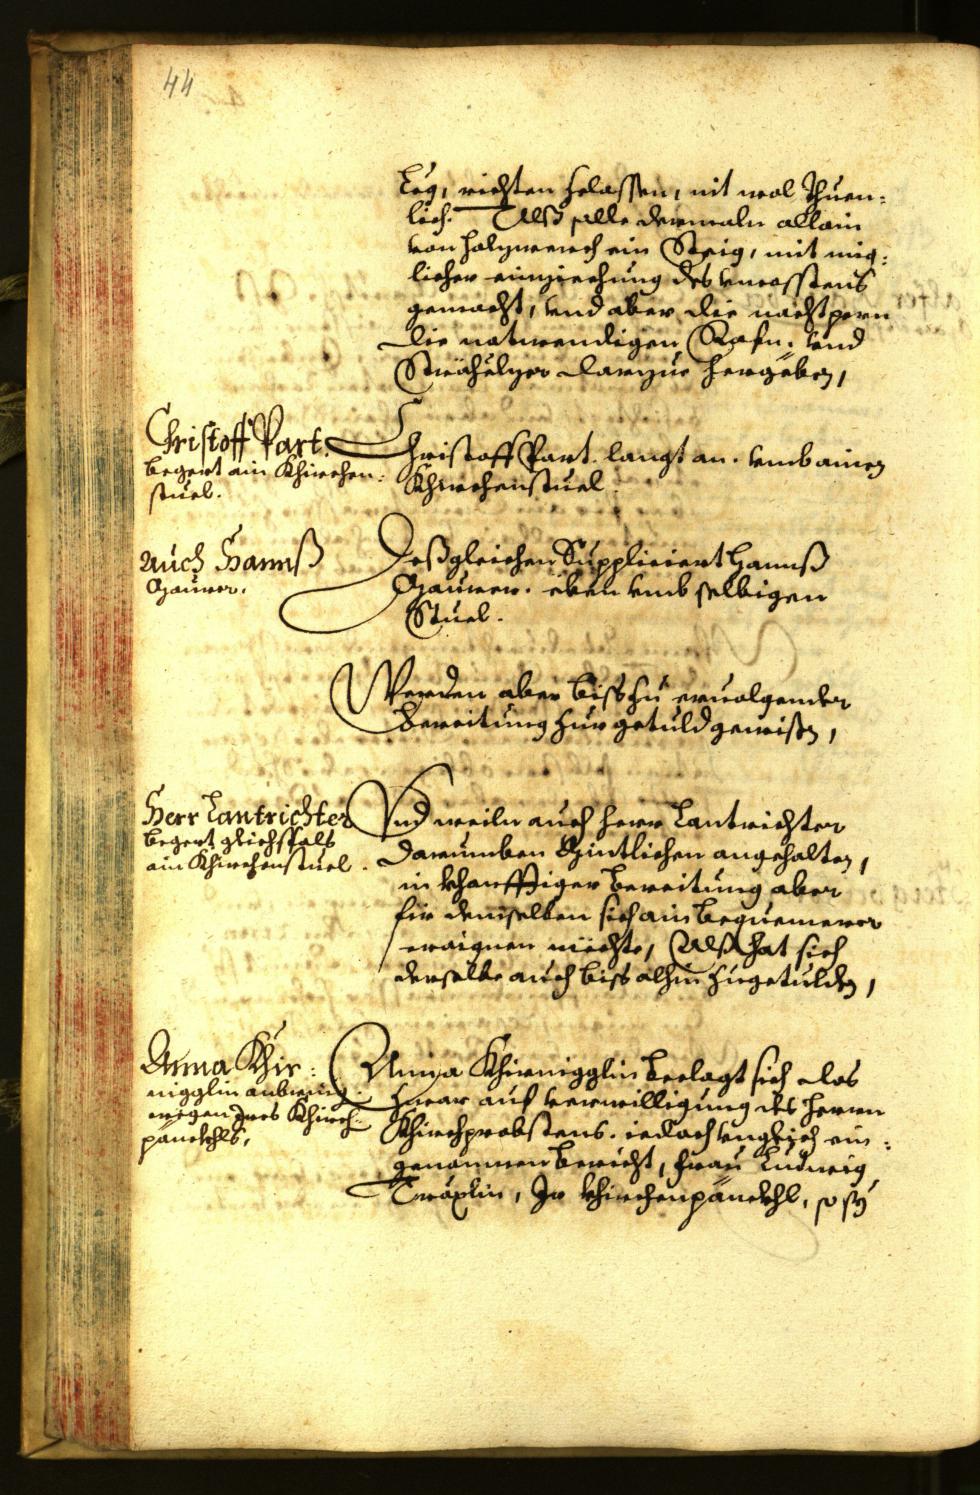 44
leg, richten zelassen, nit wol thuen-
lich. Alß solle dermaln allain
von holzwerch ein Steig, mit mig-
licher einziechung des uncosstens
gemacht, und aber die nachtpern
die notwendigen Rafn. und
Strähelzer darzue hergeben,
Christoff Part.
begert ain Khirchen-
stuel.
Christoff Part. langt an. umb ainen
Khirchenstuel.
Auch Hannß
Gaurer.
Deßgleichen Suppliciert Hannß
Gaurer. eben umb selbigen
Stuel.
Werden aber biss zu ervolgender
Bereitung zur getuld gewisen,
Herr Lantrichter
begert gleichsfals
ain Khirchenstuel.
Und weiln auch herr Lantrichter
darumben Gintlichen angehalten,
in khonfftiger bereitung aber
fir denselben sich ain bequemerer
eraignen mechte, Alß hat sich
derselbe auch biss alhin zugetulden,
Anna Khir-
nigglin anbring-
wegen Ires Khirch-
pänckhls.
Anna Khirnigglin beclagt sich das
zwar auf verwilligung des herrn
Khirchprobstens. iedoch ungleich ein-
genommen bericht, frau Ludwig
Träxlin, Ir khirchenpänckhl, so sy